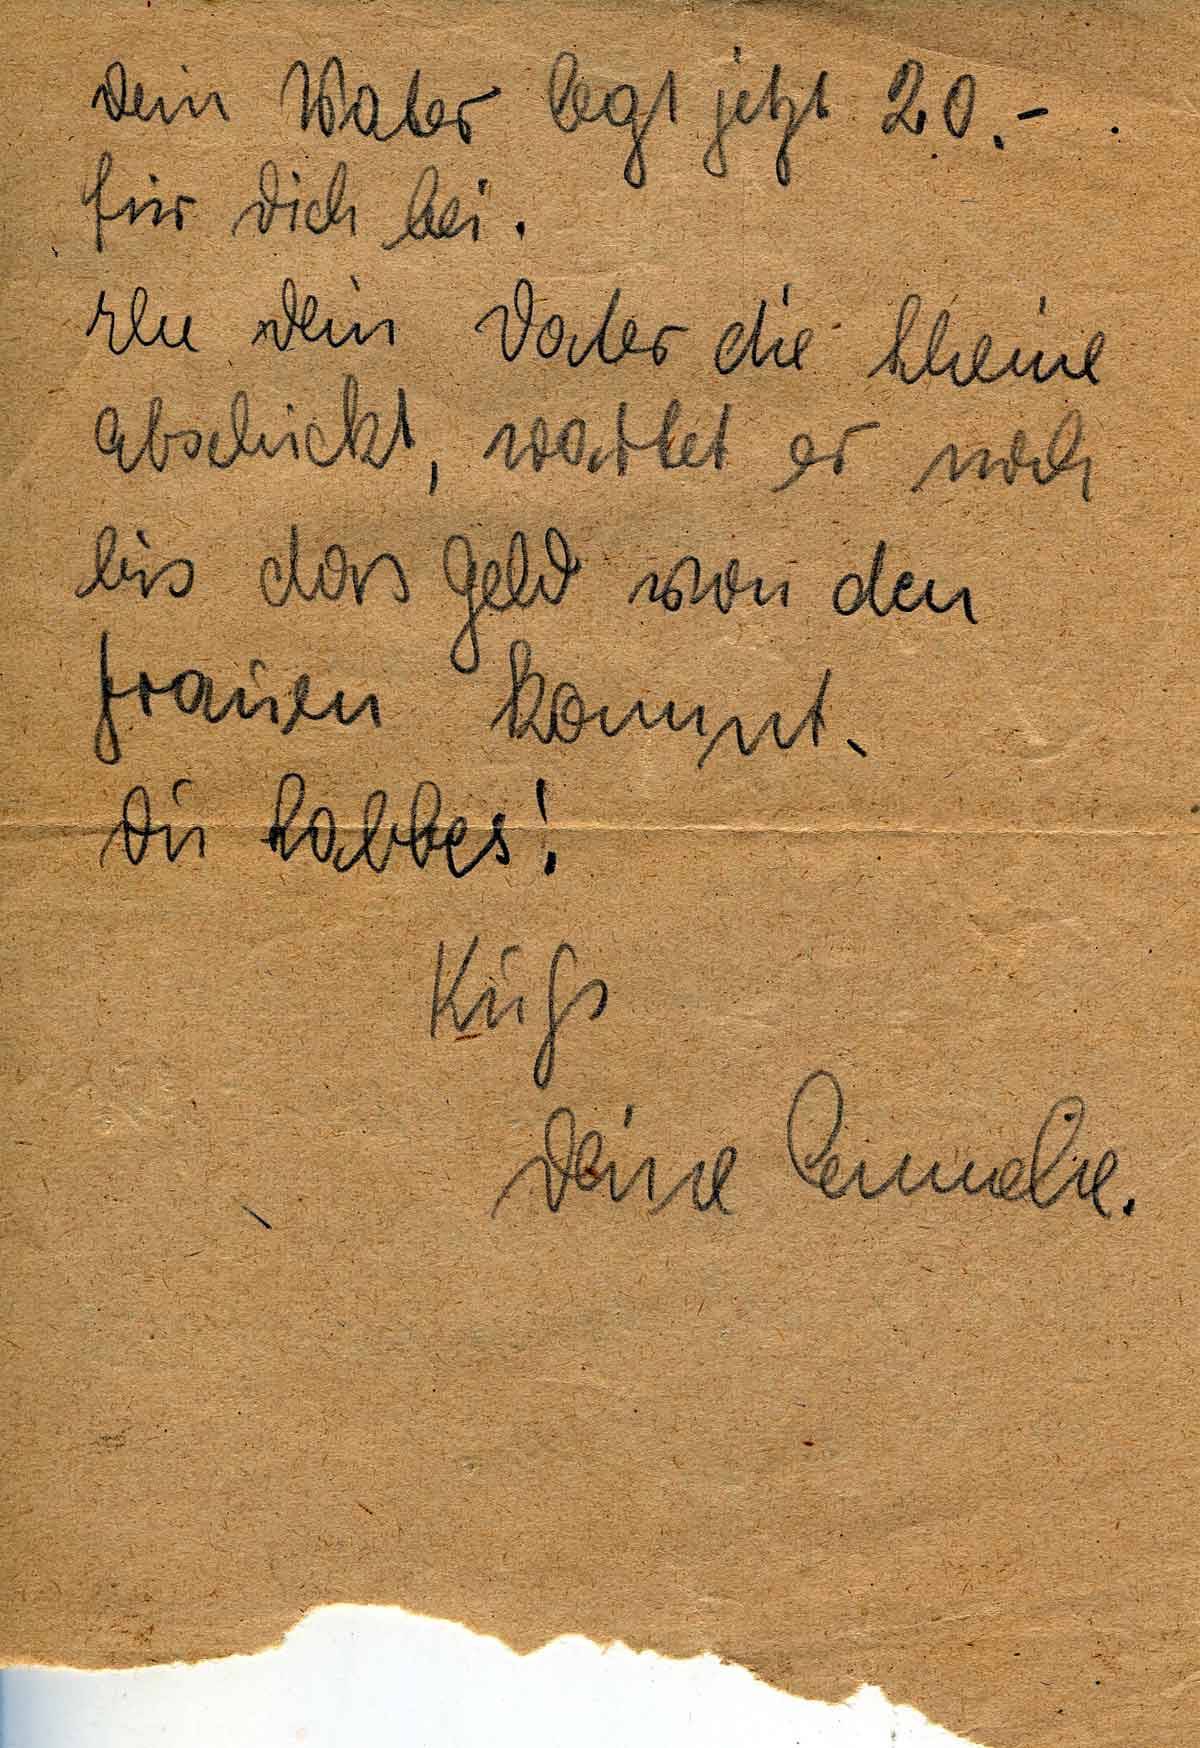 Dein Vater legt jetzt 20.-
für Dich bei.
Ehe Dein Vater die kleine
abschickt, wartet er noch
bis das Geld von den
Frauen kommt.
Du Labbes!
Kuß
Deine